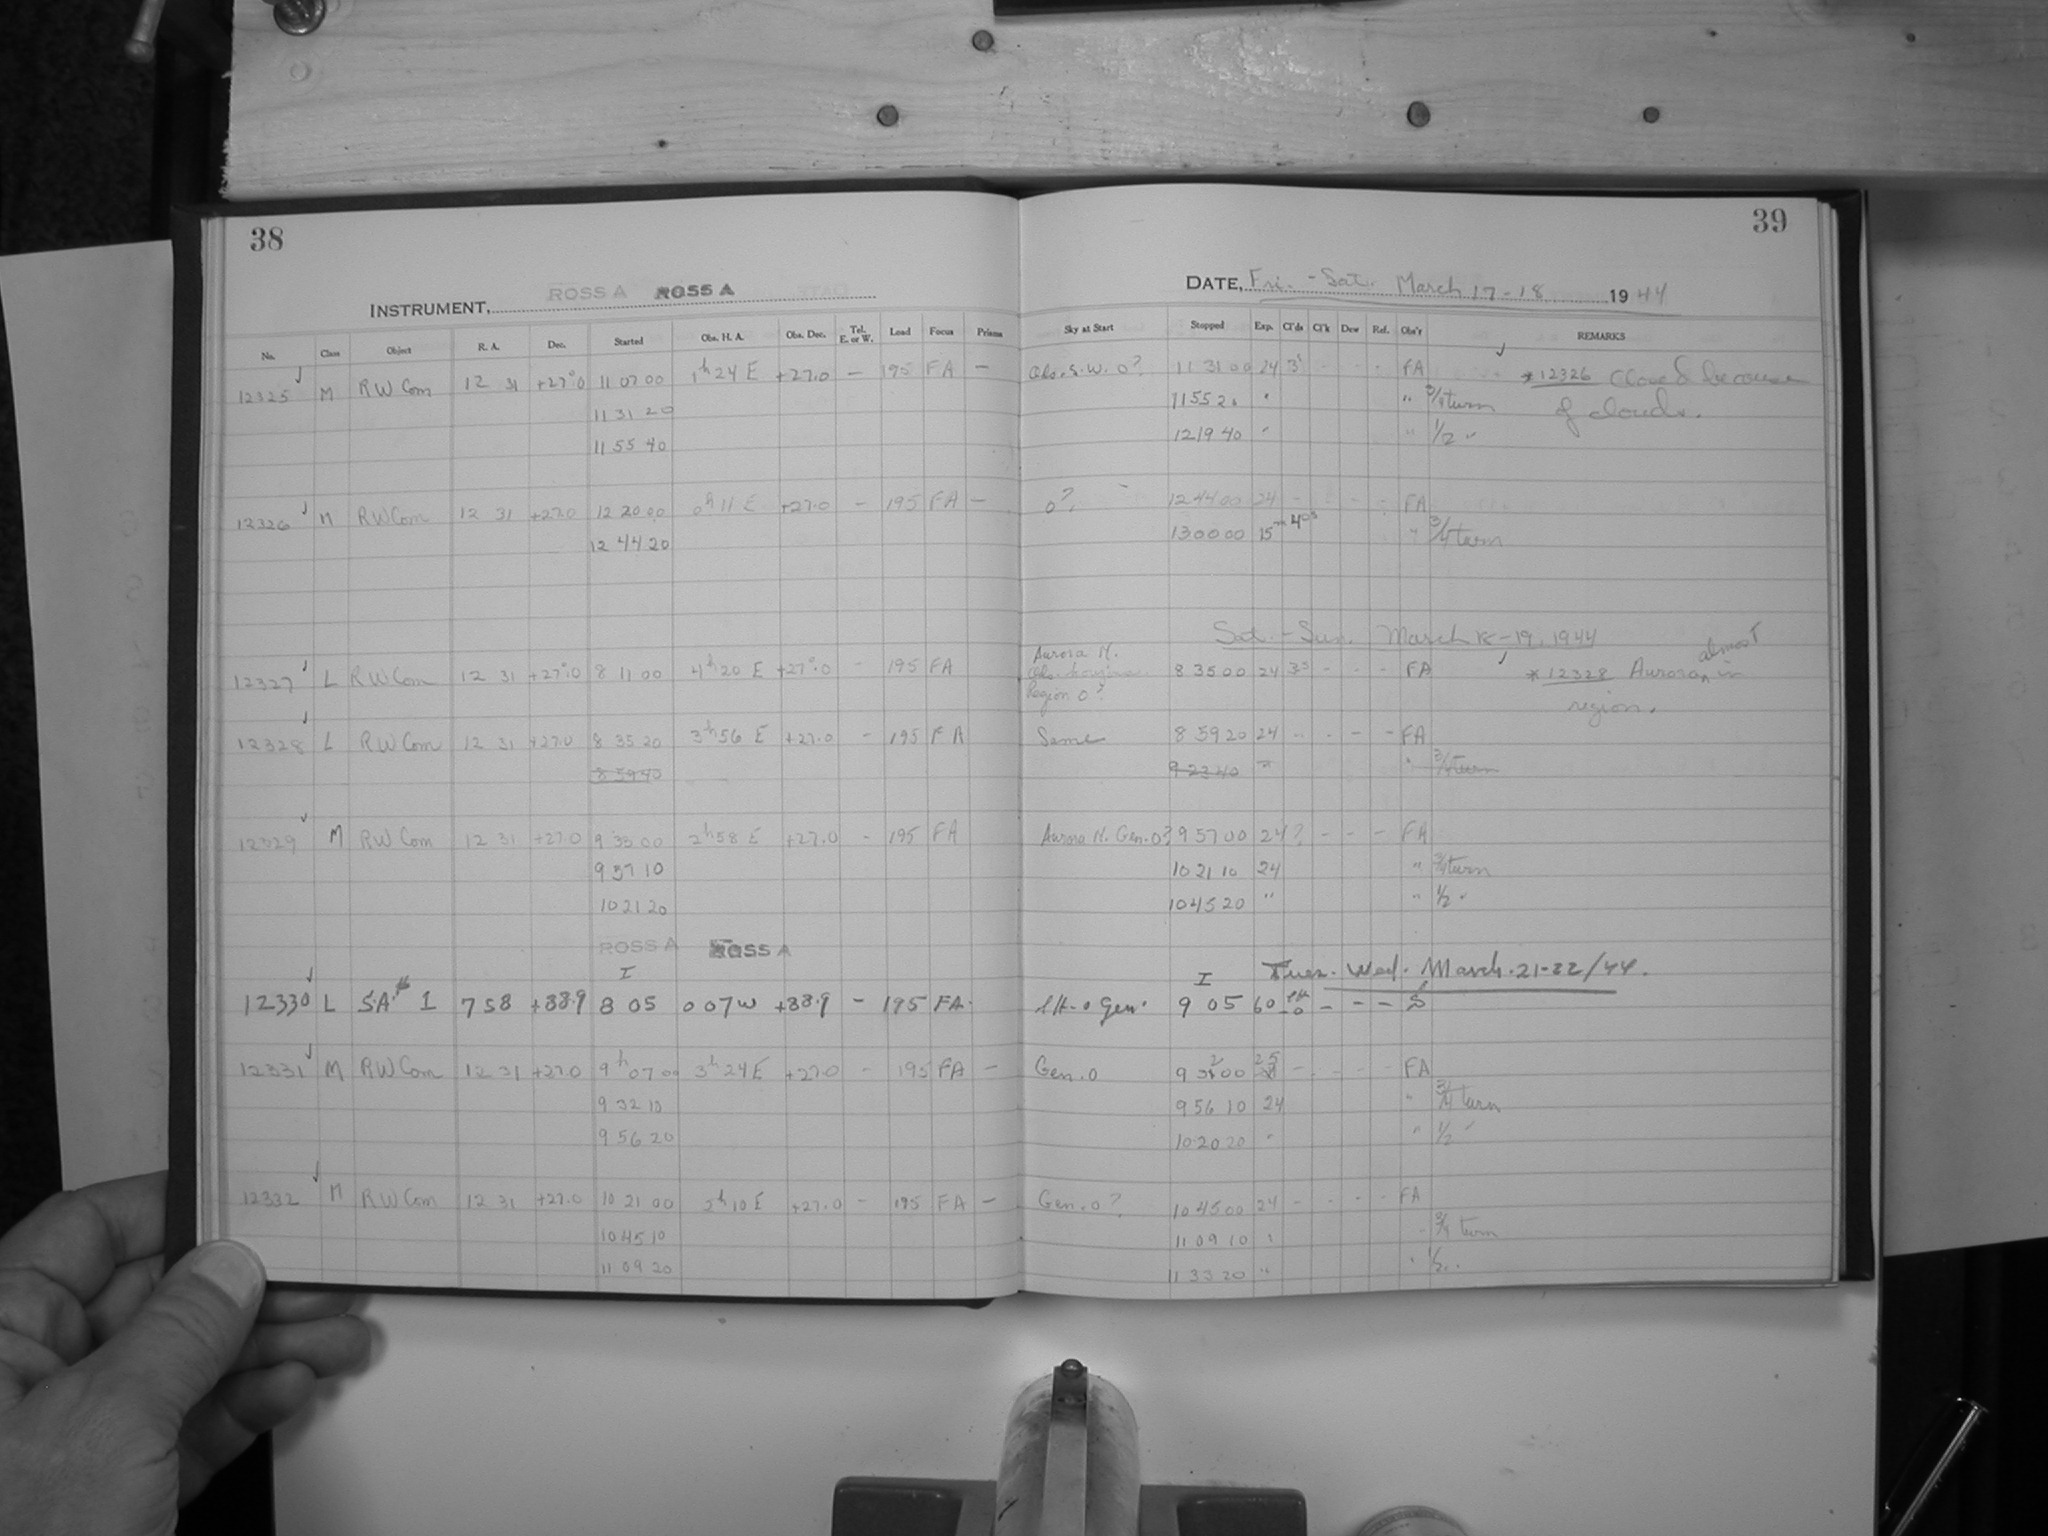 38
39
INSTRUMENT, ROSS A ROSS A
DATE, Fri. - Sat. March 17-18 1944
No. Class Object R. A. Dec. Started Obs. H. A. Obs. Dec. Tel. E. or W. Load Focus Prisms Sky at Start Stopped Exp. Cl'ds Cl'k Dew Ref. Obs'r REMARKS
12325 M RW Com 12 31 +27°.0 11 07 00 1h 24 E +27.0 - 195 FA - S.W. 0? 11 31 00 24 3s - - - FA * 12326 Closed because
11 31 20 11 55 20 " " 3/4 turn of clouds.
11 55 40 12 19 40 " " 1/2 "
12326 M RW Com 12 31 +27.0 12 20 00 0h 11 E +27.0 - 195 FA - 0? 12 44 00 24 - - - FA
12 44 20 13 00 00 15m 40s " 3/4 turn
Sat. - Sun. March 18-19, 1944
12327 L RW Com 12 31 +27°.0 8 11 00 4h 20 E +27°.0 - 195 FA Aurora N. Region 0? 8 35 00 24 3s - - - FA * 12328 Aurora almost in
region.
12328 L RW Com 12 31 +27.0 8 35 20 3h 56 E +27.0 - 195 FA Same 8 59 20 24 - - - - FA
8 59 40 9 23 40 " " 3/4 turn
12329 M RW Com 12 31 +27.0 9 33 00 2h 58 E +27.0 - 195 FA Aurora N. Gen. 0? 9 57 00 24 ? - - - FA
9 57 10 10 21 10 24 " 3/4 turn
10 21 20 10 45 20 " " 1/2 "
ROSS A ROSS A
I I Tues. Wed. March. 21-22/44.
12330 L S.A. 1 7 58 +88.9 8 05 0 07 W +88.9 - 195 FA. Gen. 9 05 60 - - - S
12331 M RW Com 12 31 +27.0 9h 07 00 3h 24 E +27.0 - 195 FA - Gen. 0 9 32 00 25 - - - - FA
9 32 10 9 56 10 24 " 3/4 turn
9 56 20 10 20 20 " " 1/2 "
12332 M RW Com 12 31 +27.0 10 21 00 2h 10 E +27.0 - 195 FA - Gen. 0? 10 45 00 24 - - - - FA
10 45 10 11 09 10 " 3/4 turn
11 09 20 11 33 20 " " 1/2 "